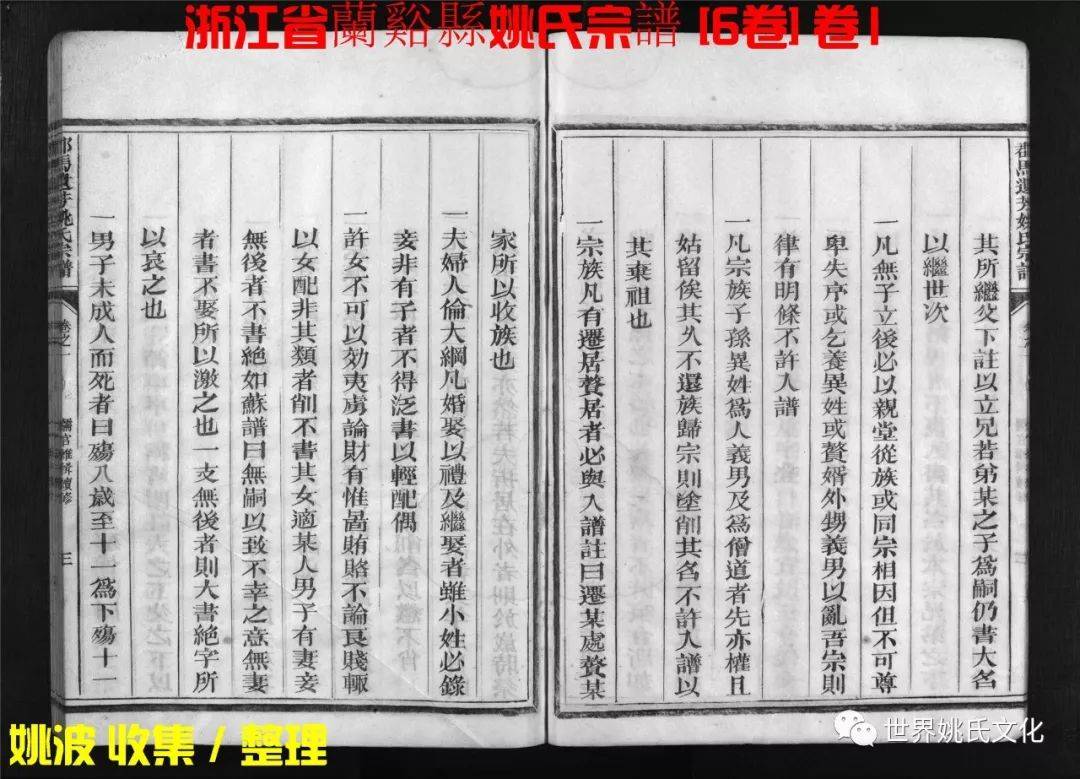 浙江省蘭谿縣姚氏宗譜 [6卷] 卷1
其所繼父下註以立兄若弟某之子爲嗣仍書大名
以繼世次
一凡無子立後必以親堂從族或同宗相因但不可尊
卑失序或乞養異姓或贅婿外甥義男以亂吾宗則
律有明條不許入譜
一凡宗族子孫異姓爲人義男及爲僧道者先亦權且
姑留俟其久不還族歸宗則塗削其名不許入譜以
其棄祖也
一宗族凡有遷居贅居者必與入譜註曰遷某處贅某
家所以收族也
一夫婦人倫大綱凡婚娶以禮及繼娶者雖小姓必錄
妾非有子者不得泛書以輕配偶
一許女不可以効夷虜論財有惟啚賄賂不論良賤輙
以女配非其類者削不書其女適某人男子有妻妾
無後者不書絶如蘇譜曰無嗣以致不幸之意無妻
者書不娶所以激之也一支無後者則大書絶字所
以哀之也
一男子未成人而死者曰殤八歲至十一爲下殤十二
姚氏宗譜
卷之一
三
姚波 收集 / 整理
世界姚氏文化